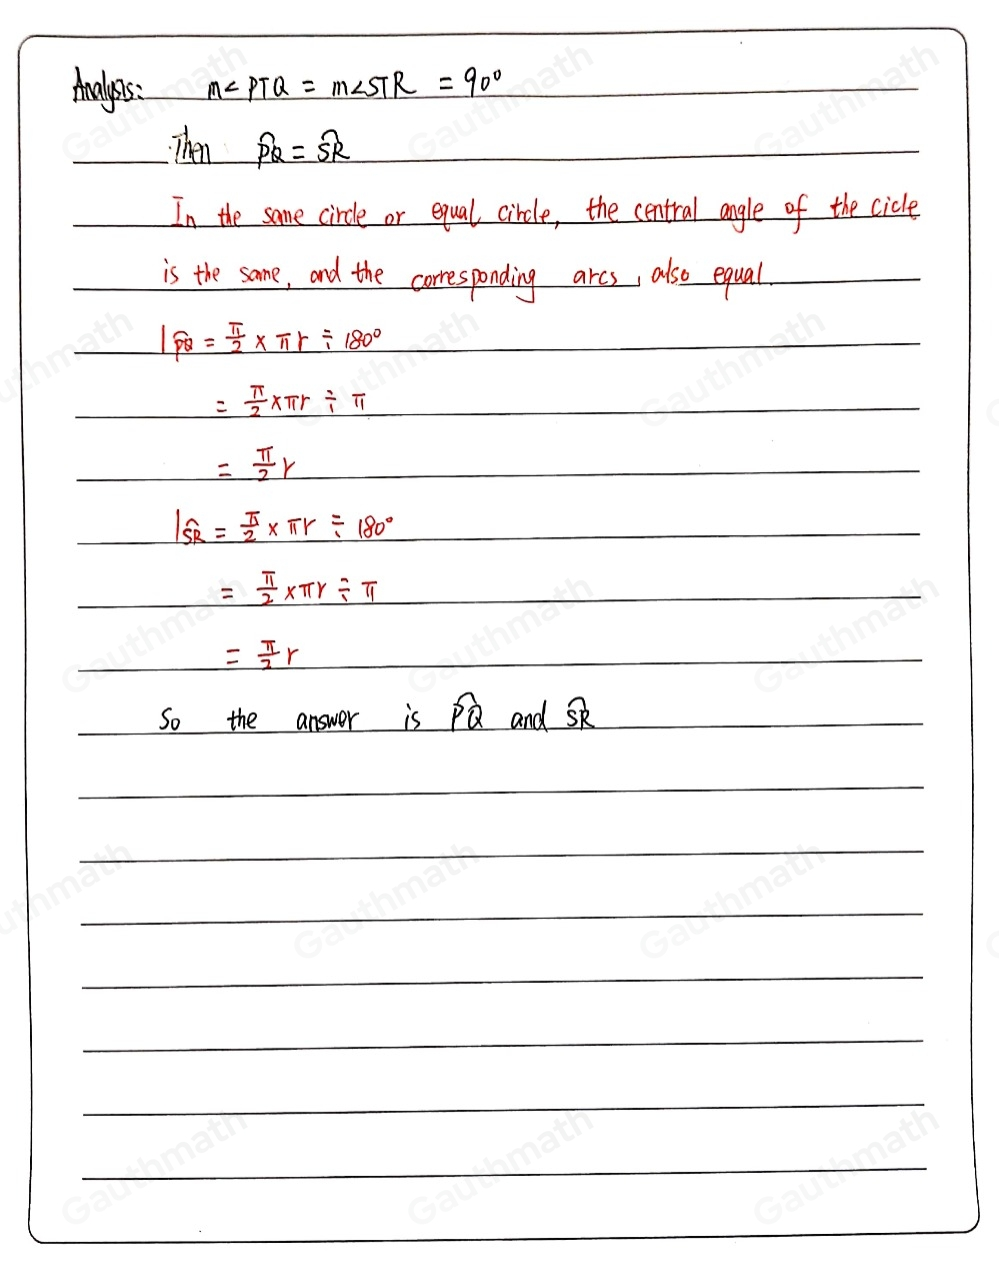 Analysis: m∠PTQ = m∠STR = 90°
Then P͡Q = S͡R
In the same circle or equal circle, the central angle of the cicle
is the same, and the corresponding arcs, also equal.
l P͡Q = π/2 × πr ÷ 180°
= π/2 × πr ÷ π
= π/2 r
l S͡R = π/2 × πr ÷ 180°
= π/2 × πr ÷ π
= π/2 r
So the answer is P͡Q and S͡R
Gauthmath